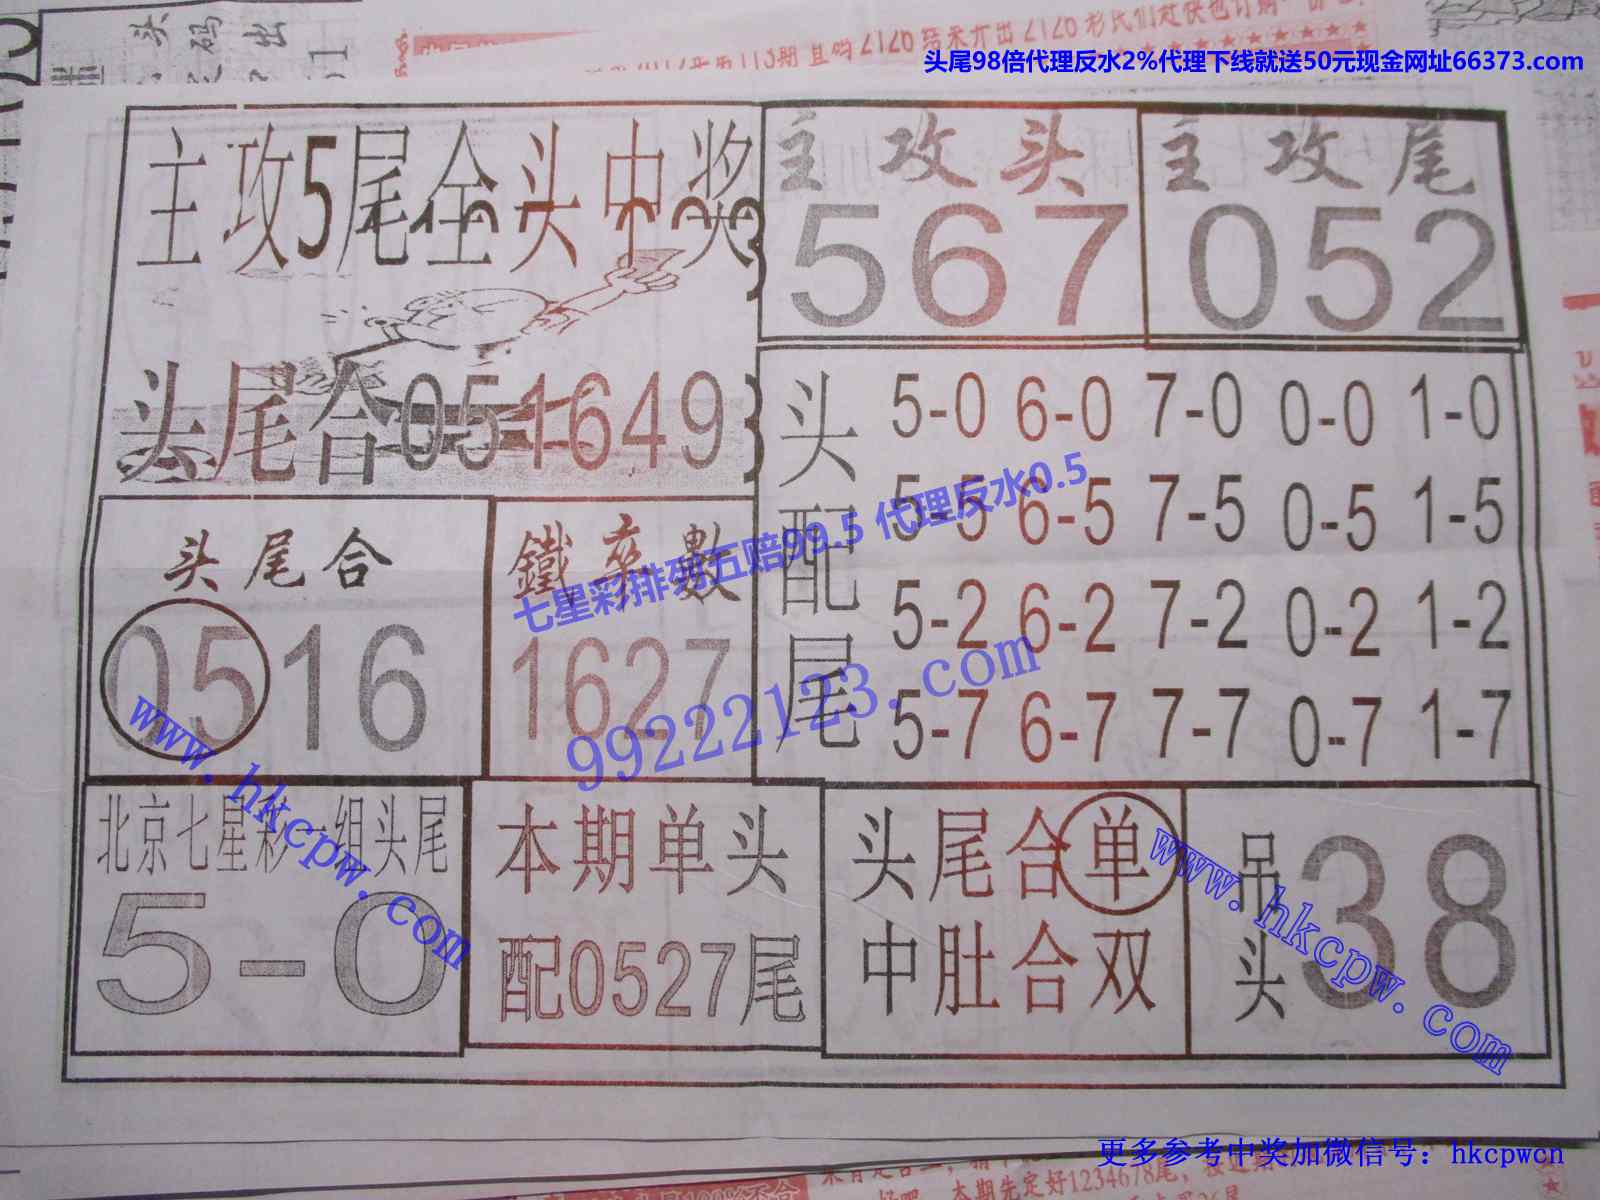 头码出
头尾98倍代理反水2%代理下线就送50元现金网址66373.com
主攻5尾全头中奖
主攻头
567
主攻尾
052
头尾合051649
头配尾
5-0 6-0 7-0 0-0 1-0
5-5 6-5 7-5 0-5 1-5
5-2 6-2 7-2 0-2 1-2
5-7 6-7 7-7 0-7 1-7
头尾合
0516
鐵來數
1627
七星彩排列五赔99.5 代理反水0.5
99222123.com
www.hkcpw.com
北京七星彩一组头尾
5-0
本期单头
配0527尾
头尾合单
中肚合双
吊头
38
www.hkcpw.com
更多参考中奖加微信号：hkcpwcn
本期先定好1234678尾，